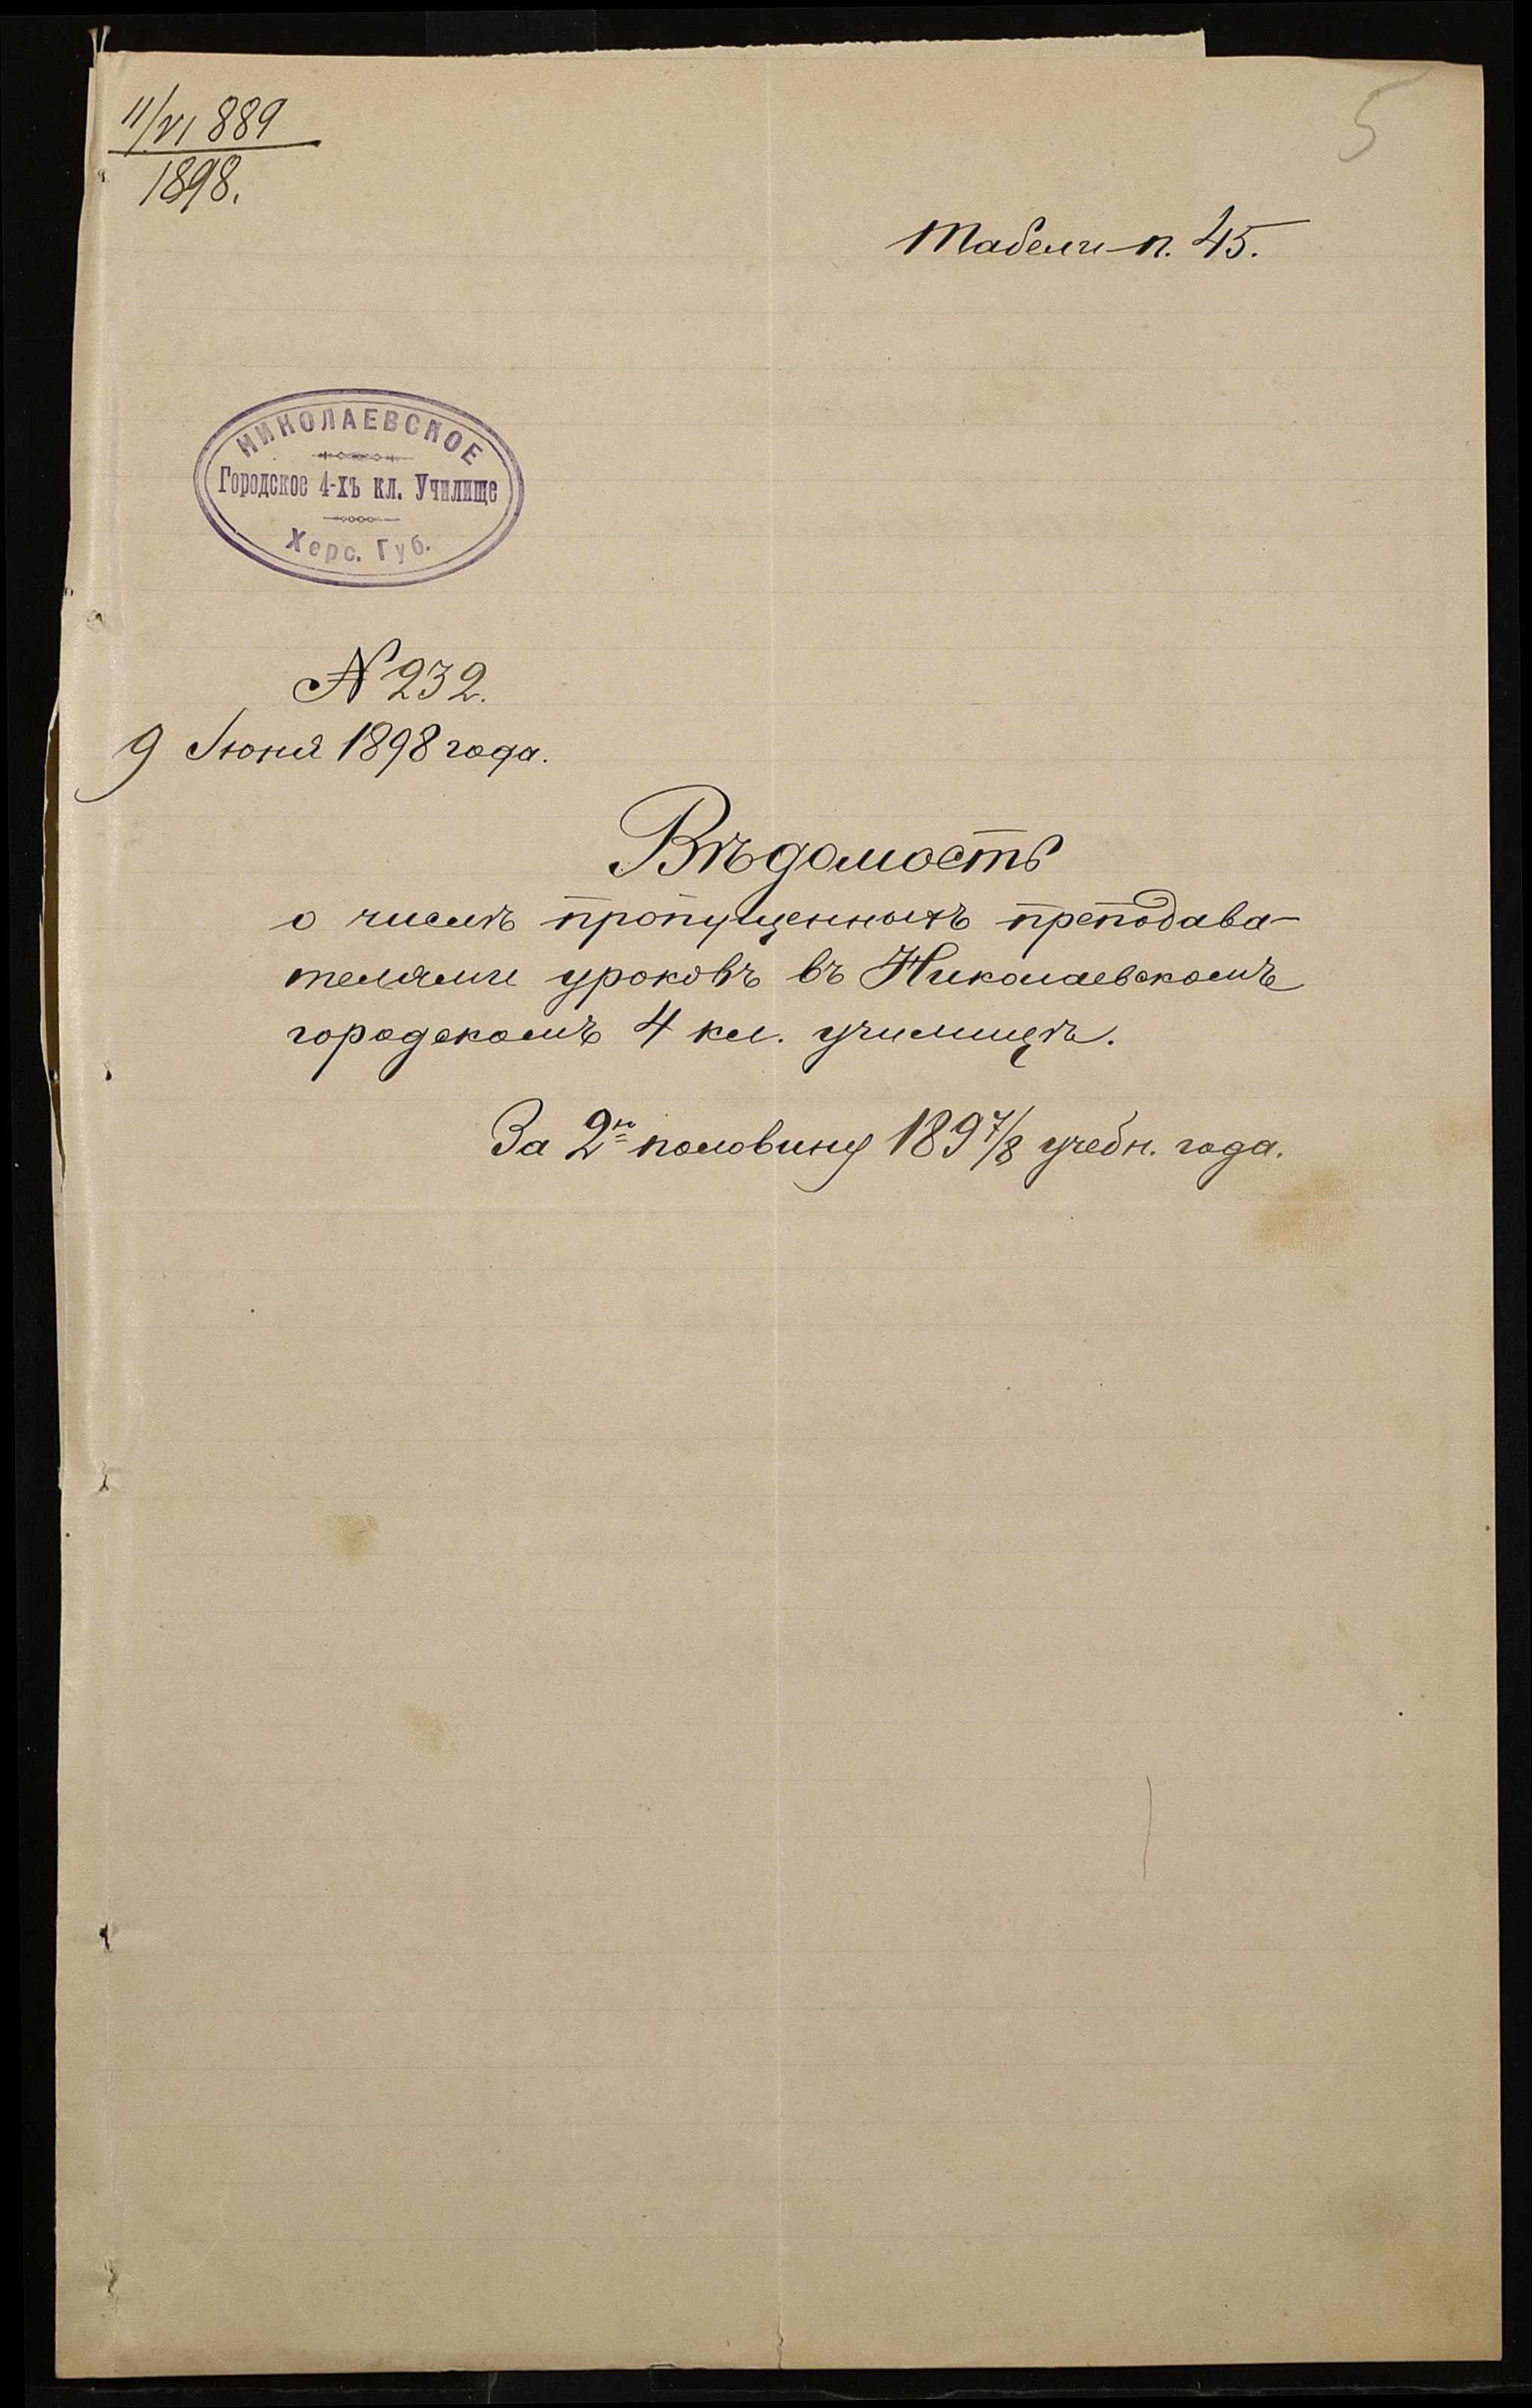 11/VI 889
1898.
5
Табели п. 45.
НИКОЛАЕВСКОЕ
Городское 4-хъ кл. Училище
Херс. Губ.
№ 232.
9 Іюня 1898 года.
Вѣдомость
о числѣ пропущенныхъ преподава-
телями уроковъ въ Николаевскомъ
городскомъ 4 кл. училищѣ.
За 2ю половину 1897/8 учебн. года.